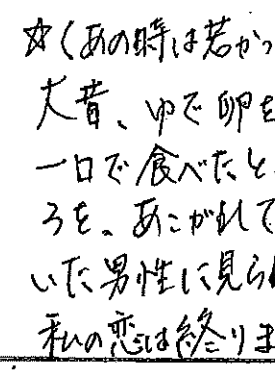 ☆(あの時は若かっ
大昔、ゆで卵を
一口で食べたと
ろを、あこがれて
いた男性に見られ
私の恋は終りま